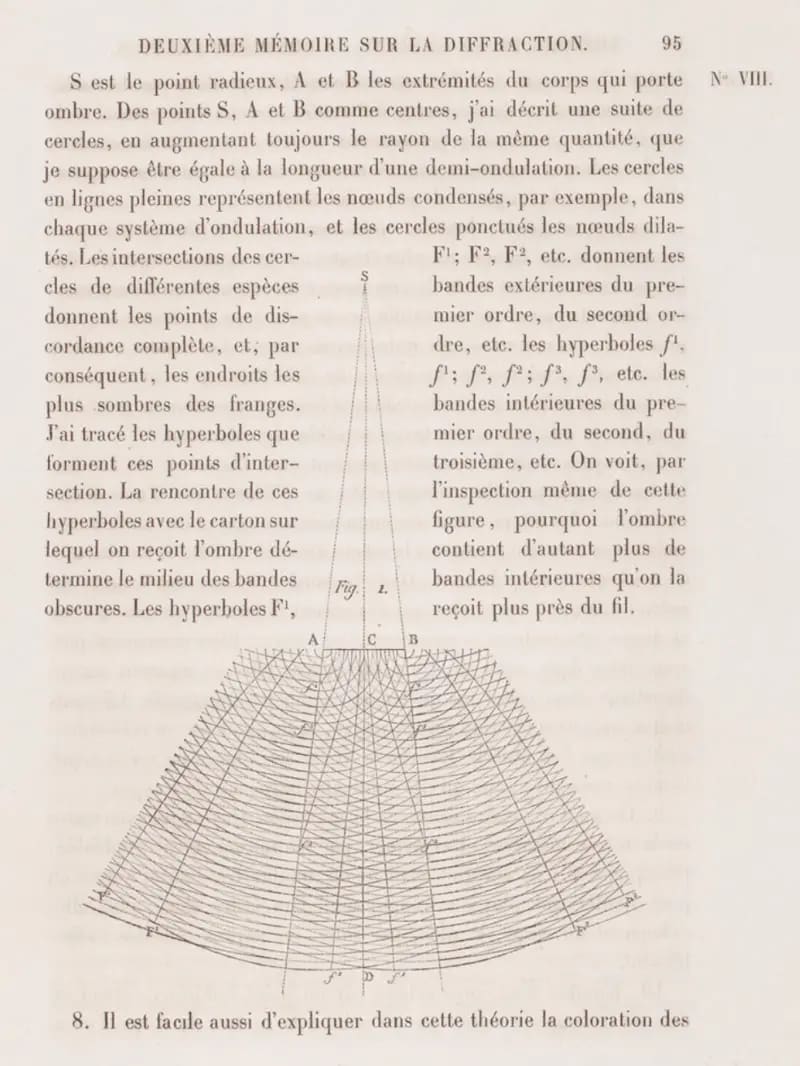 DEUXIÈME MÉMOIRE SUR LA DIFFRACTION. 95
N° VIII.
S est le point radieux, A et B les extrémités du corps qui porte
ombre. Des points S, A et B comme centres, j'ai décrit une suite de
cercles, en augmentant toujours le rayon de la même quantité, que
je suppose être égale à la longueur d'une demi-ondulation. Les cercles
en lignes pleines représentent les nœuds condensés, par exemple, dans
chaque système d'ondulation, et les cercles ponctués les nœuds dila-
tés. Les intersections des cer-
cles de différentes espèces
donnent les points de dis-
cordance complète, et, par
conséquent, les endroits les
plus sombres des franges.
J'ai tracé les hyperboles que
forment ces points d'inter-
section. La rencontre de ces
hyperboles avec le carton sur
lequel on reçoit l'ombre dé-
termine le milieu des bandes
obscures. Les hyperboles F¹,
F¹; F², F², etc. donnent les
bandes extérieures du pre-
mier ordre, du second or-
dre, etc. les hyperboles f¹,
f¹; f², f²; f³, f³, etc. les
bandes intérieures du pre-
mier ordre, du second, du
troisième, etc. On voit, par
l'inspection même de cette
figure, pourquoi l'ombre
contient d'autant plus de
bandes intérieures qu'on la
reçoit plus près du fil.
S
Fig. 1.
A C B
F¹ F²
D
8. Il est facile aussi d'expliquer dans cette théorie la coloration des